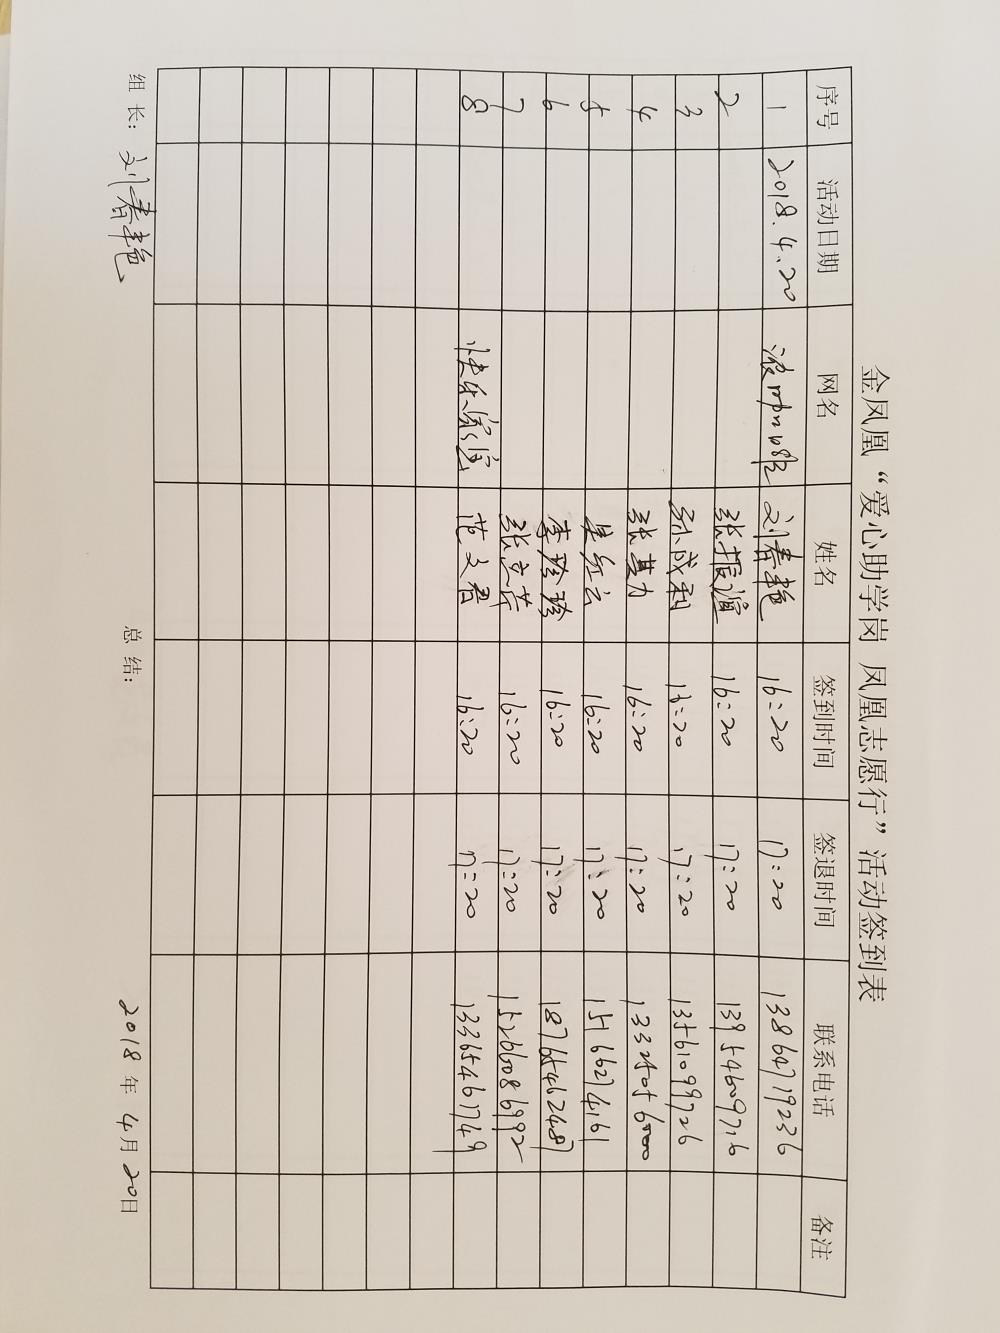 金凤凰“爱心助学岗 凤凰志愿行”活动签到表
序号 活动日期 网名 姓名 签到时间 签退时间 联系电话 备注
1 2018.4.20 刘春艳 16:20 17:20 13864719236
2 张振谊 16:20 17:20 13954609716
3 孙成利 16:20 17:20 13561099726
4 张其力 16:20 17:20 13325056000
5 吴红云 16:20 17:20 15166274161
6 李珍珍 16:20 17:20 18765462487
7 张立芹 16:20 17:20 15266086992
8 快乐家园 范文君 16:20 17:20 13365461749
组 长: 刘春艳 总 结: 2018 年 4月 20日